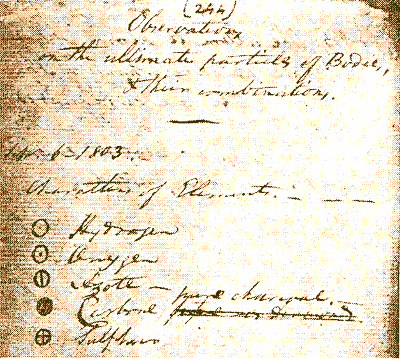 (244)
Observations
on the ultimate particles of Bodies,
& their combinations.
6 1803.
Characters of Elements. —
Hydrogen
Oxygen
Azote
Carbone — pure charcoal. —
Sulphur